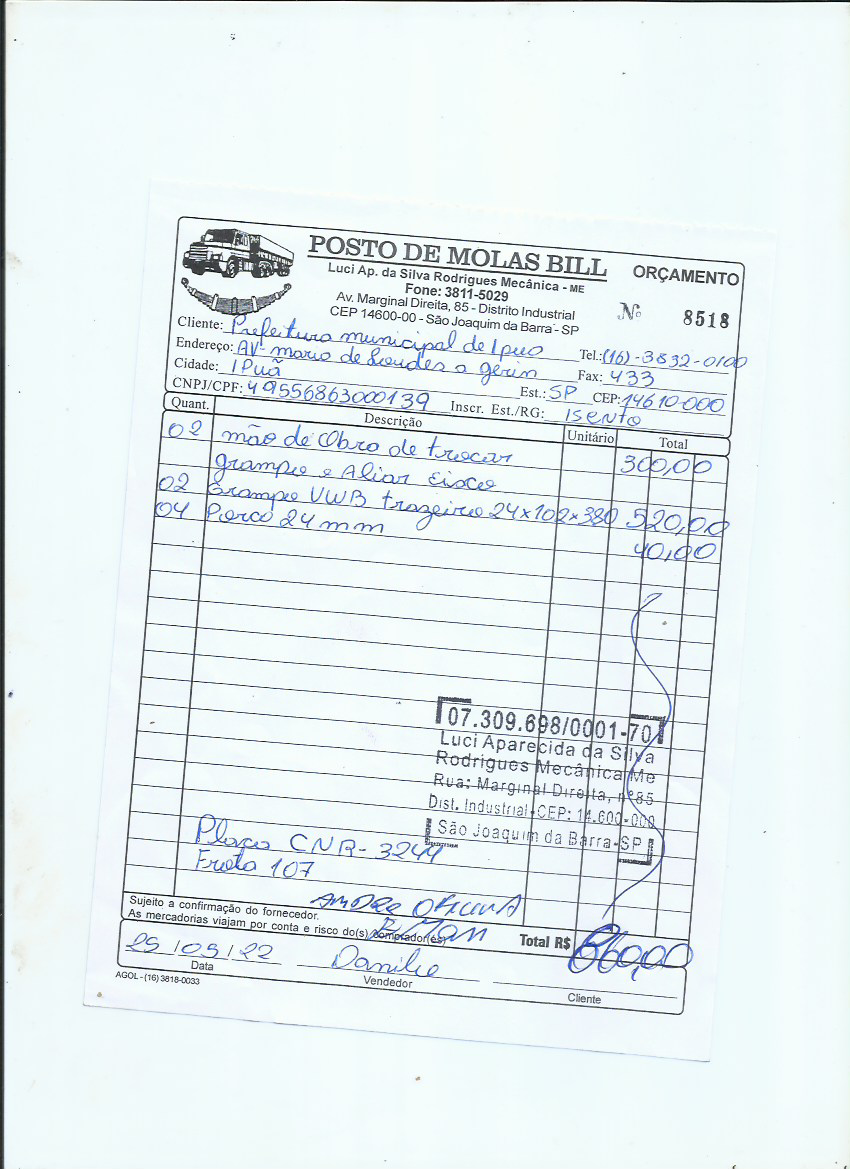 POSTO DE MOLAS BILL
ORÇAMENTO
Luci Ap. da Silva Rodrigues Mecânica - ME
Fone: 3811-5029
Av. Marginal Direita, 85 - Distrito Industrial
CEP 14600-00 - São Joaquim da Barra - SP
Nº 8518
Cliente: Prefeitura municipal de Ipuã
Tel.: (16)-3832-0100
Endereço: AV- mario de Lourdes a gerin
Fax: 433
Cidade: IPuã
Est.: SP CEP: 14610-000
CNPJ/CPF: 49556863000139 Inscr. Est./RG: isento
Quant. Descrição Unitário Total
02 mão de obra de trocar 300,00
grampo e Aliar Eixco
02 Grampo VWB trazeiro 24x102x380 520,00
04 Porco 24 mm 40,00
07.309.698/0001-70
Luci Aparecida da Silva
Rodrigues Mecânica Me
Rua: Marginal Direita, nº85
Dist. Industrial-CEP: 14.600-000
São Joaquim da Barra-SP
Placa CNR-3244
Frota 107
Sujeito a confirmação do fornecedor.
ANDRE OFICINA
As mercadorias viajam por conta e risco do(s) comprador(es)
Total R$ 860,00
25/05/22 Danilo
Data Vendedor Cliente
AGOL - (16) 3818-0033